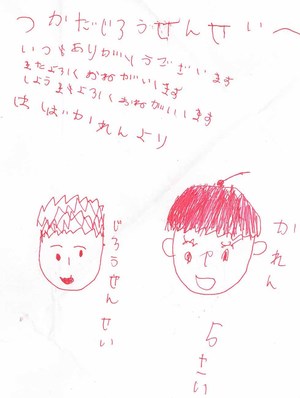 つかだじろうせんせいへ
いつもありがとうございます
またよろしくおねがいします
しょうまもよろしくおねがいします
はばかれんより
かれん
じろうせんせい
5さい